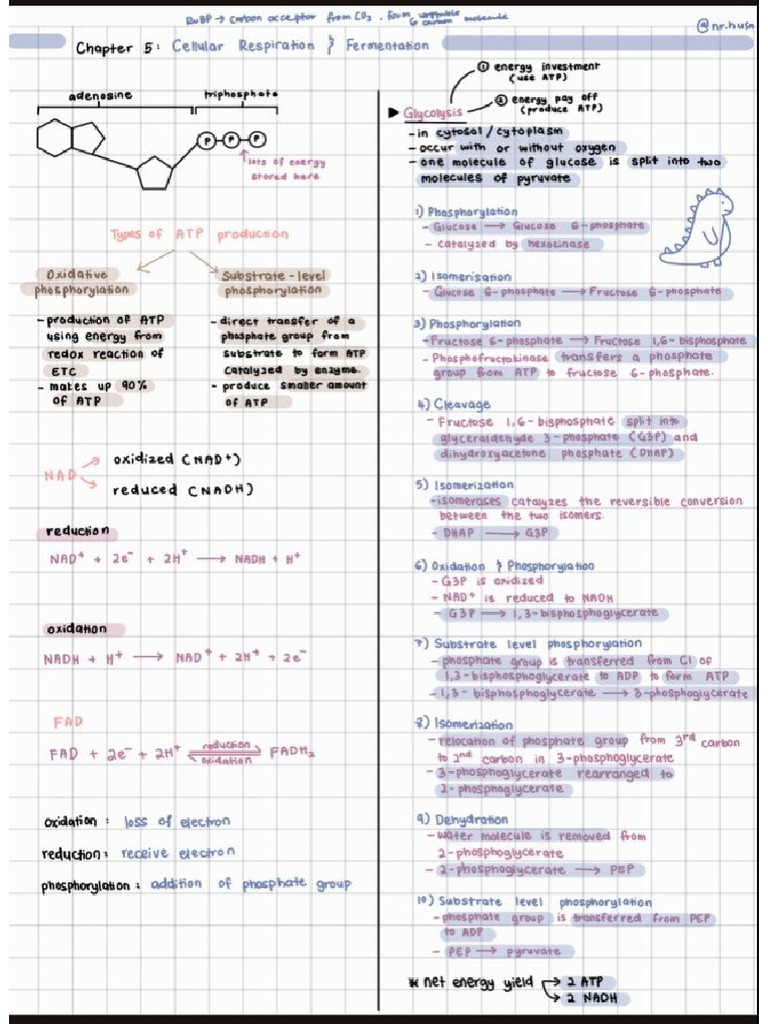 RuBP → carbon acceptor from CO₂. form unstable
6 carbon molecule
@nr.husn
Chapter 5: Cellular Respiration & Fermentation
adenosine
triphosphate
P P P
lots of energy
stored here
Types of ATP production
Oxidative
phosphorylation
- production of ATP
using energy from
redox reaction of
ETC
- makes up 90%
of ATP
Substrate-level
phosphorylation
- direct transfer of a
phosphate group from
substrate to form ATP
catalyzed by enzyme.
- produce smaller amount
of ATP
NAD
oxidized (NAD⁺)
reduced (NADH)
reduction
NAD⁺ + 2e⁻ + 2H⁺ → NADH + H⁺
oxidation
NADH + H⁺ → NAD⁺ + 2H⁺ + 2e⁻
FAD
FAD + 2e⁻ + 2H⁺ reduction oxidation FADH₂
oxidation: loss of electron
reduction: receive electron
phosphorylation: addition of phosphate group
▶ Glycolysis
① energy investment
(use ATP)
② energy pay off
(produce ATP)
- in cytosol/cytoplasm
- occur with or without oxygen
- one molecule of glucose is split into two
molecules of pyruvate
1) Phosphorylation
- Glucose → Glucose 6-phosphate
- catalyzed by hexokinase
2) Isomerisation
- Glucose 6-phosphate → Fructose 6-phosphate
3) Phosphorylation
- Fructose 6-phosphate → Fructose 1,6-bisphosphate
- Phosphofructokinase transfers a phosphate
group from ATP to fructose 6-phosphate.
4) Cleavage
- Fructose 1,6-bisphosphate split into
glyceraldehyde 3-phosphate (G3P) and
dihydroxyacetone phosphate (DHAP)
5) Isomerization
- isomerases catalyzes the reversible conversion
between the two isomers.
- DHAP → G3P
6) Oxidation & Phosphorylation
- G3P is oxidized
- NAD⁺ is reduced to NADH
- G3P → 1,3-bisphosphoglycerate
7) Substrate level phosphorylation
- phosphate group is transferred from C1 of
1,3-bisphosphoglycerate to ADP to form ATP
- 1,3-bisphosphoglycerate → 3-phosphoglycerate
8) Isomerization
- relocation of phosphate group from 3rd carbon
to 2nd carbon in 3-phosphoglycerate
- 3-phosphoglycerate rearranged to
2-phosphoglycerate
9) Dehydration
- water molecule is removed from
2-phosphoglycerate
- 2-phosphoglycerate → PEP
10) Substrate level phosphorylation
- phosphate group is transferred from PEP
to ADP
- PEP → pyruvate
* net energy yield → 2 ATP
→ 2 NADH